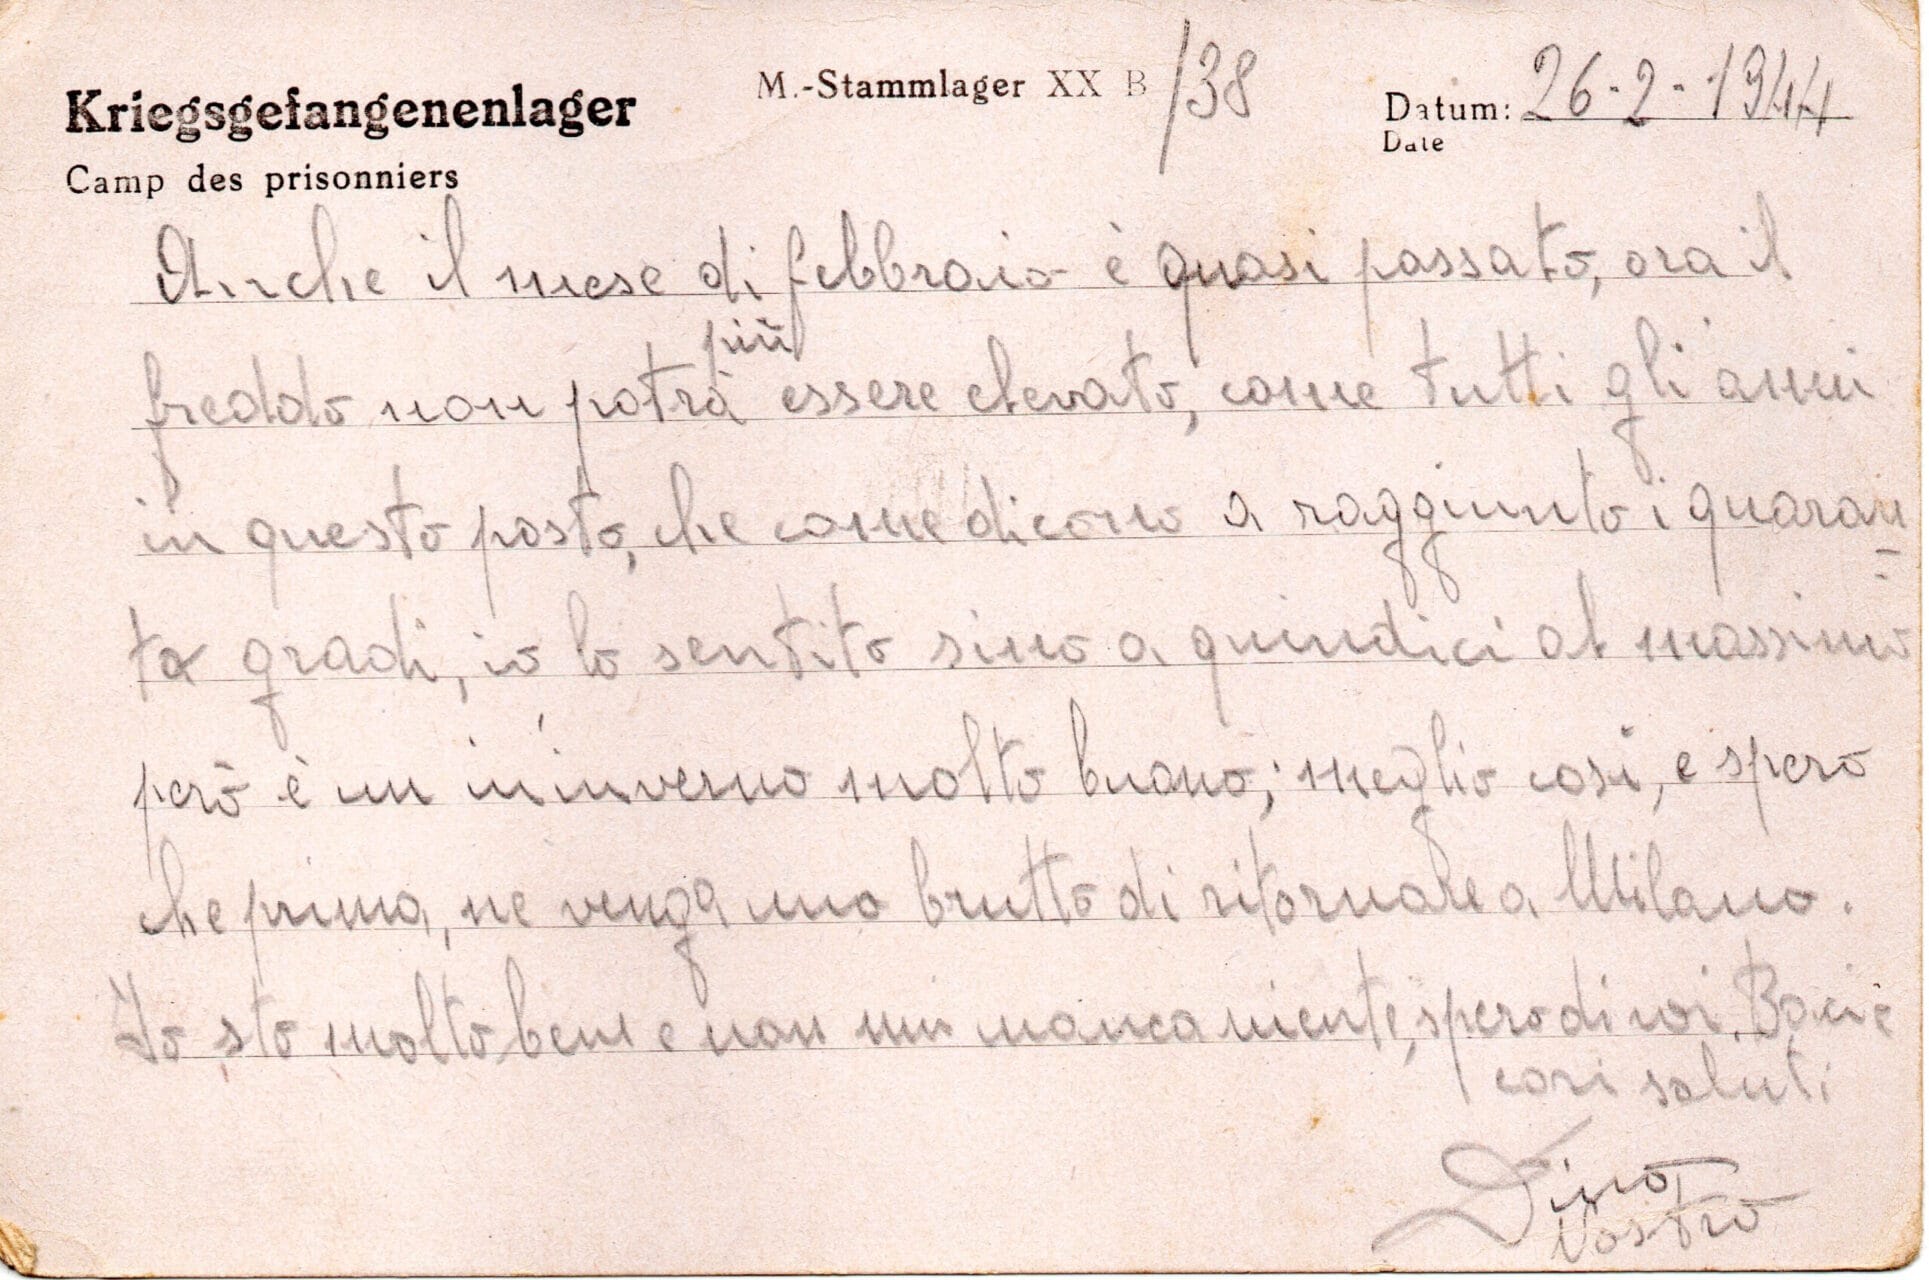 Kriegsgefangenenlager
Camp des prisonniers
M.-Stammlager XX B /38
Datum: 26-2-1944
Date
Anche il mese di febbraio è quasi passato, ora il
freddo non potrà più essere elevato, come tutti gli anni
in questo posto, che come dicono a raggiunto i quaran
ta gradi, io lo sentito sino a quindici al massimo
però è un in'inverno molto buono; meglio così, e spero
che prima, ne venga uno brutto di ritornare a Milano.
Io sto molto bene e non mi manca niente, spero di voi. Baci e
cari saluti
Dino
Vostro